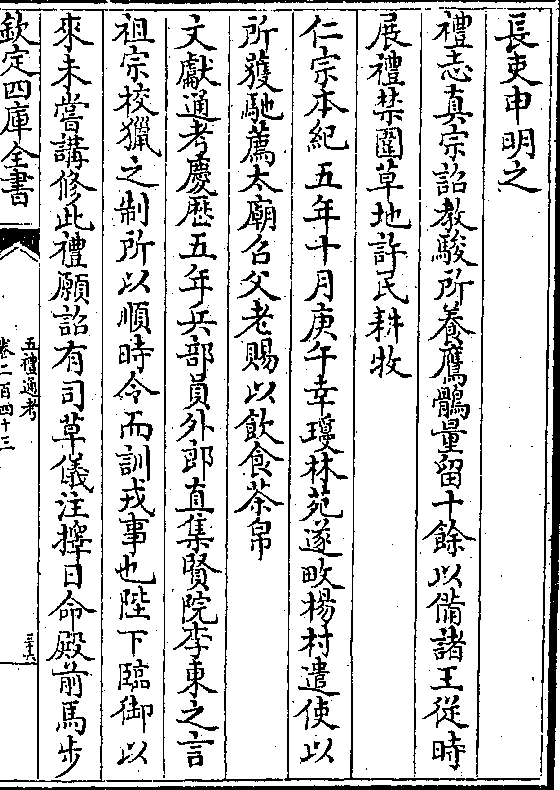 長吏申明之
禮志真宗詔教駿所養鷹鶻量留十餘以備諸王從時
展禮禁圍草地許民耕牧
仁宗本紀五年十月庚午幸瓊林苑遂畋楊村遣使以
所獲馳薦太廟召父老賜以飲食茶帛
文獻通考慶歴五年兵部員外郎直集賢院李東之言
祖宗校獵之制所以順時令而訓戎事也陛下臨御以
來未嘗講修此禮願詔有司草儀注擇日命殿前馬步
欽定四庫全書
五禮通考
卷二百四十三
三六